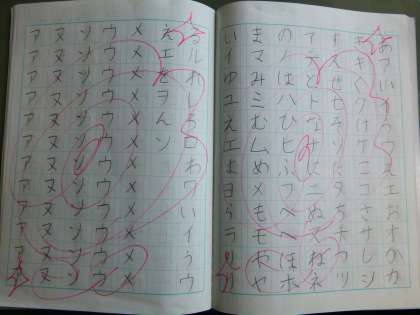 あアいイうウえエおオかカ
きキくクけケこコさサしシ
すスせセそソたタちチつツ
てテとトなナにニぬヌねネ
のノはハひヒふフへヘほホ
まマみミむムめメもモやヤ
いイゆユえエよヨらラりリ
るルれレろロわワいイうウ
えエをヲんン
メメメメメメメメメメメメ
ウウウウウウウウウウウウ
ソソソソソソソソソソソソ
ヌヌヌヌヌヌヌヌヌヌヌヌ
アアアアアアアアアアアア